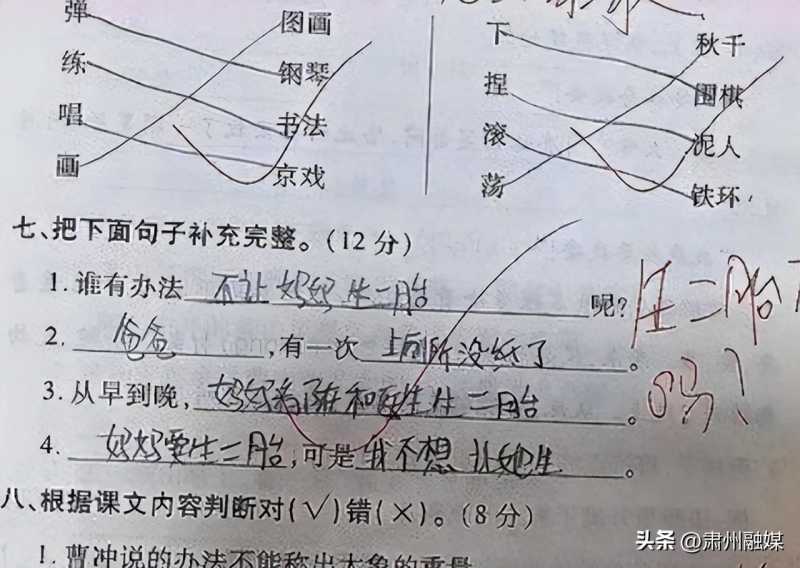 弹 图画 下 秋千
练 钢琴 捏 围棋
唱 书法 滚 泥人
画 京戏 荡 铁环
七、把下面句子补充完整。(12分)
1.谁有办法 不让妈妈生二月台 呢?
2. 爸爸 ,有一次 上厕所没纸了 。
3.从早到晚, 妈妈都和医生生二月台 。
4. 妈妈要生二月台 ,可是 我不想让她生 。
生二胎
吗?
八、根据课文内容判断对(√)错(×)。(8分)
1.曹冲说的办法不能称出大象的重量
头条 @肃州融媒